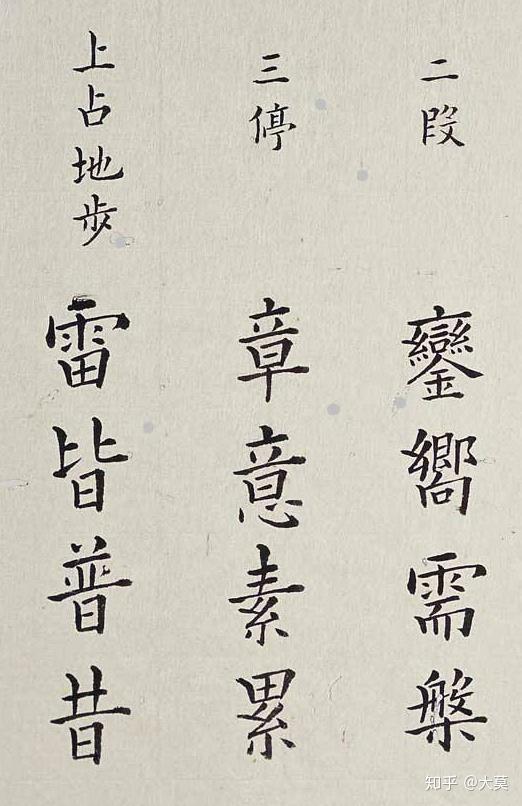 二段
鑾嚮需槃
三停
章意素累
上占地步
雷皆普昔
知乎 @大莫